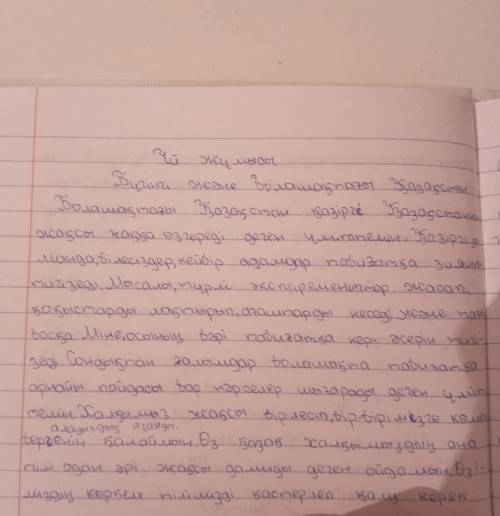 Үй жұмысы.
Бүгінгі және болашақтағы Қазақстан
Болашақтағы Қазақстан қазіргі Қазақстанға
жақсы жаққа өзгереді деген үміттемін. Қазіргі за-
манда, білесіздер, кейбір адамдар табиғатқа зиянын
тигізеді. Мысалы, түрлі эксперементтер жасап,
қоқыстарды лақтырып, ағаштарды кеседі және тағы
басқа. Міне, осының бәрі табиғатқа кері әсерін тигі-
зеді. Сондықтан ғалымдар болашақта табиғатқа
арнайы пайдасы бар нәрселер шығарады деген үміт-
темін. Халқымыз жақсы бірлесіп, бір-бірімізге көмек
алауыздық азайды.
бергенін қалаймын. Өз қазақ халқымыздың ана
тілі одан әрі жақсы дамиды деген ойдамын. Өзі-
міздің көркем тілімізді қастерлеп қалу керек